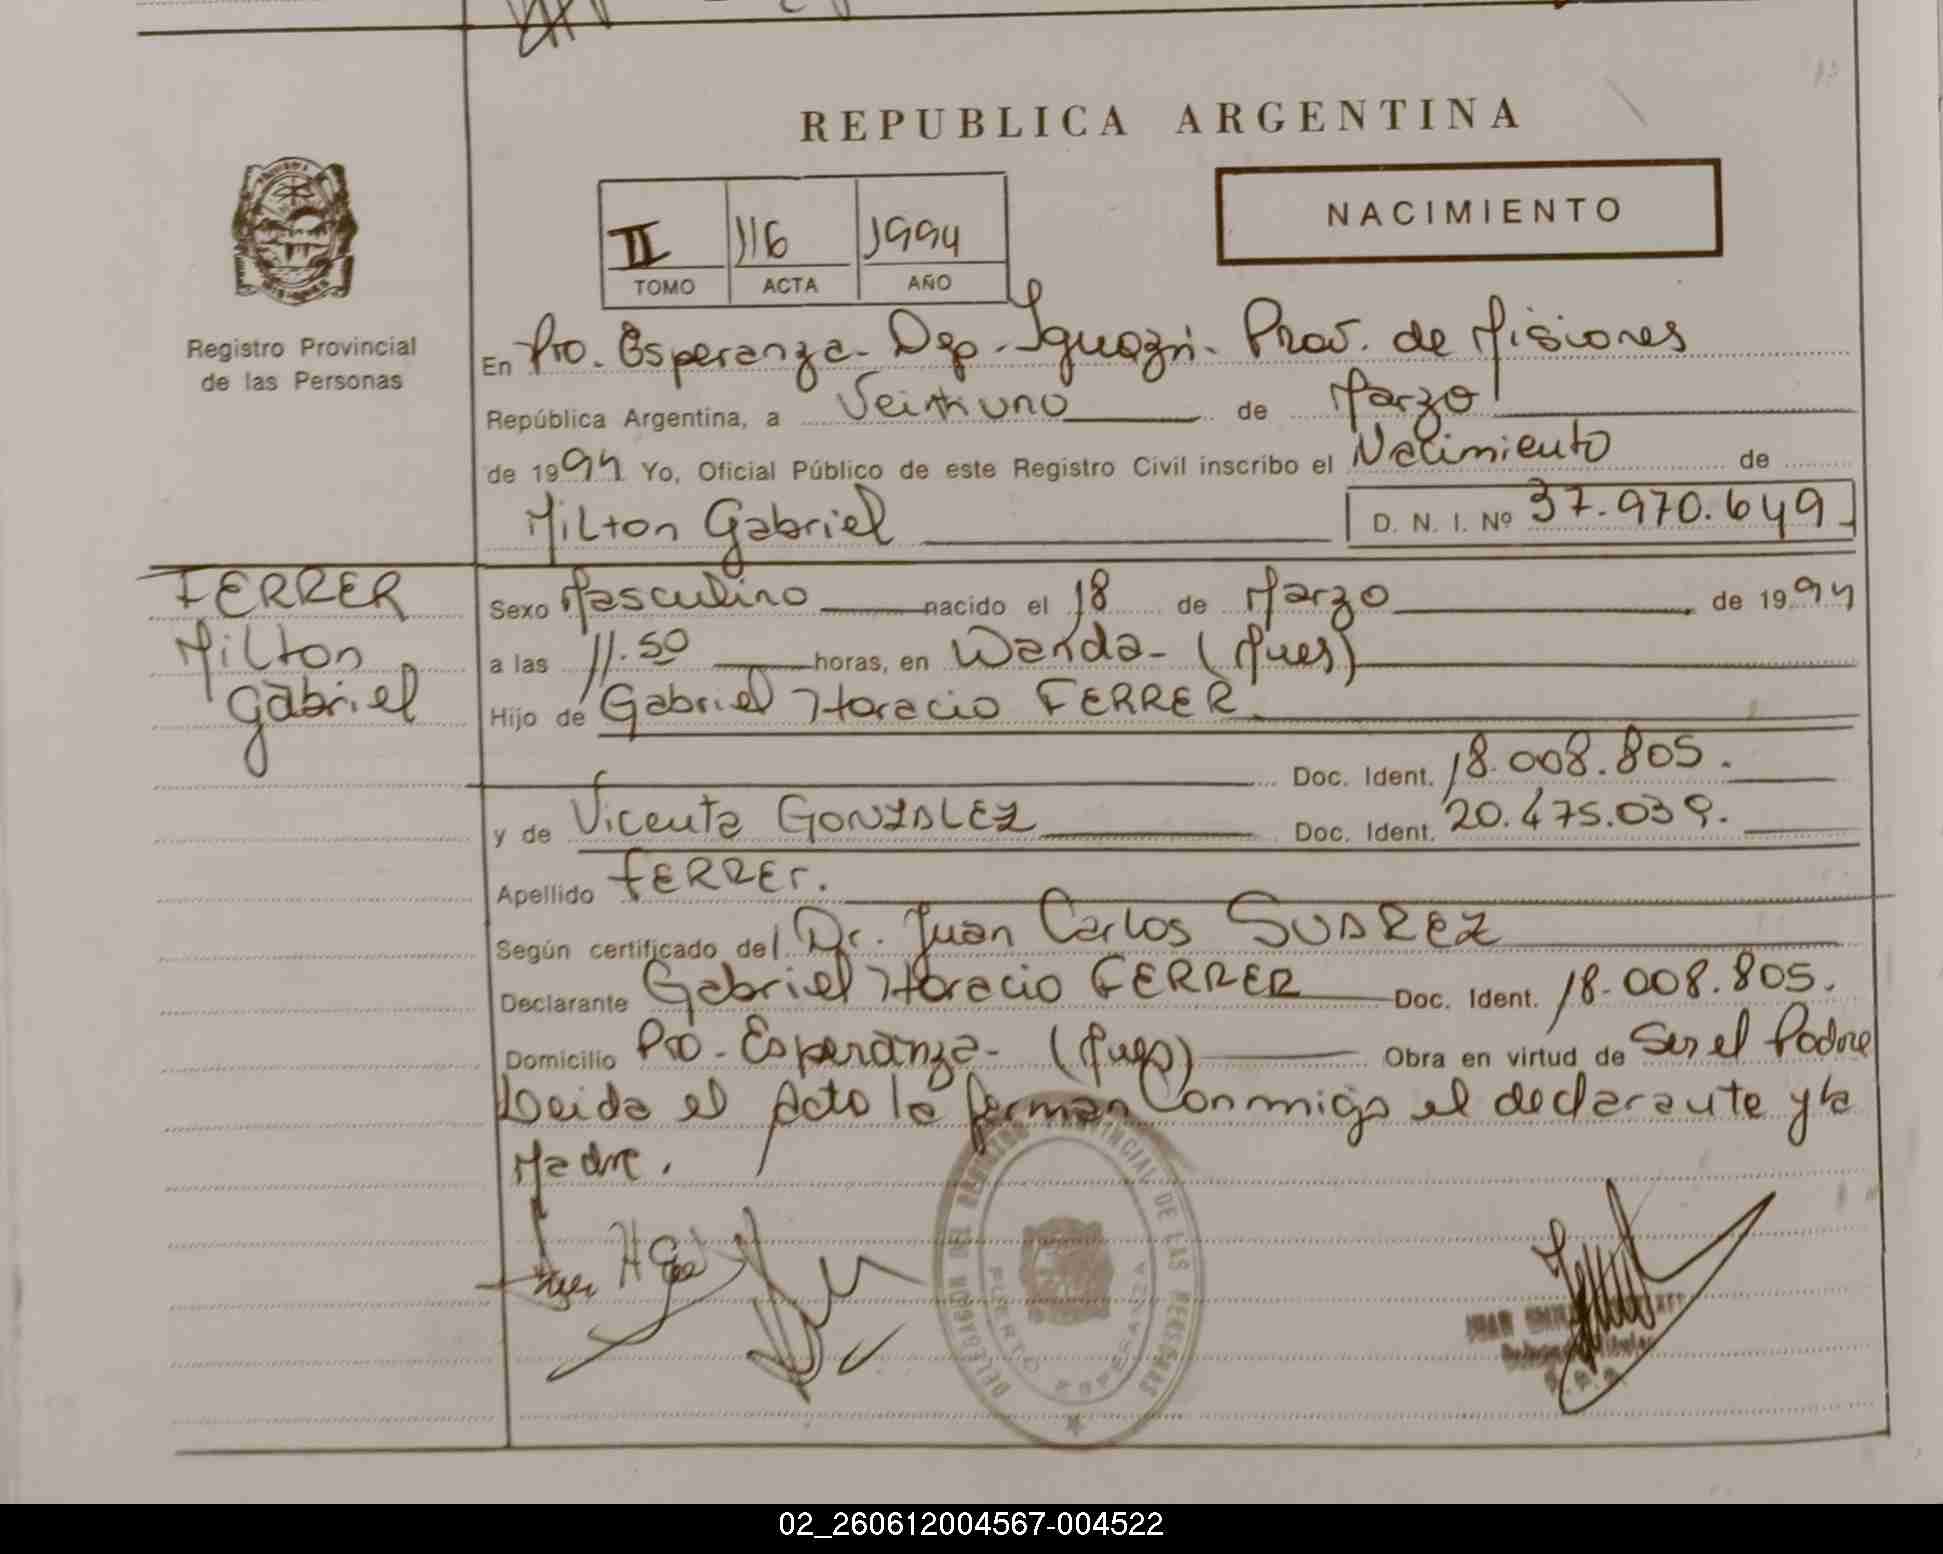 REPUBLICA ARGENTINA
NACIMIENTO
II 116 1994
TOMO ACTA AÑO
Registro Provincial
de las Personas
En Pto. Esperanza - Dep. Iguazú. Prov. de Misiones
República Argentina, a Veintiuno de Marzo
de 1994 Yo, Oficial Público de este Registro Civil inscribo el Nacimiento de
Milton Gabriel D. N. I. Nº 37.970.649
FERRER
Milton
Gabriel
Sexo Masculino nacido el 18 de Marzo de 1994
a las 11.50 horas, en Wanda - (Mnes)
Hijo de Gabriel Horacio FERRER
Doc. Ident. 18.008.805.
y de Vicenta GONZALEZ Doc. Ident. 20.475.039.
Apellido FERREr.
Según certificado del Dr. Juan Carlos SUAREZ
Declarante Gabriel Horacio FERRER Doc. Ident. 18.008.805.
Domicilio Pto - Esperanza - (Mnes) Obra en virtud de Ser el Padre
Leida el Acta la firman Conmigo el declarante y la
Madre.
DELEGACION DEL REGISTRO PROVINCIAL DE LAS PERSONAS
PUERTO ESPERANZA
JUAN
02_260612004567-004522